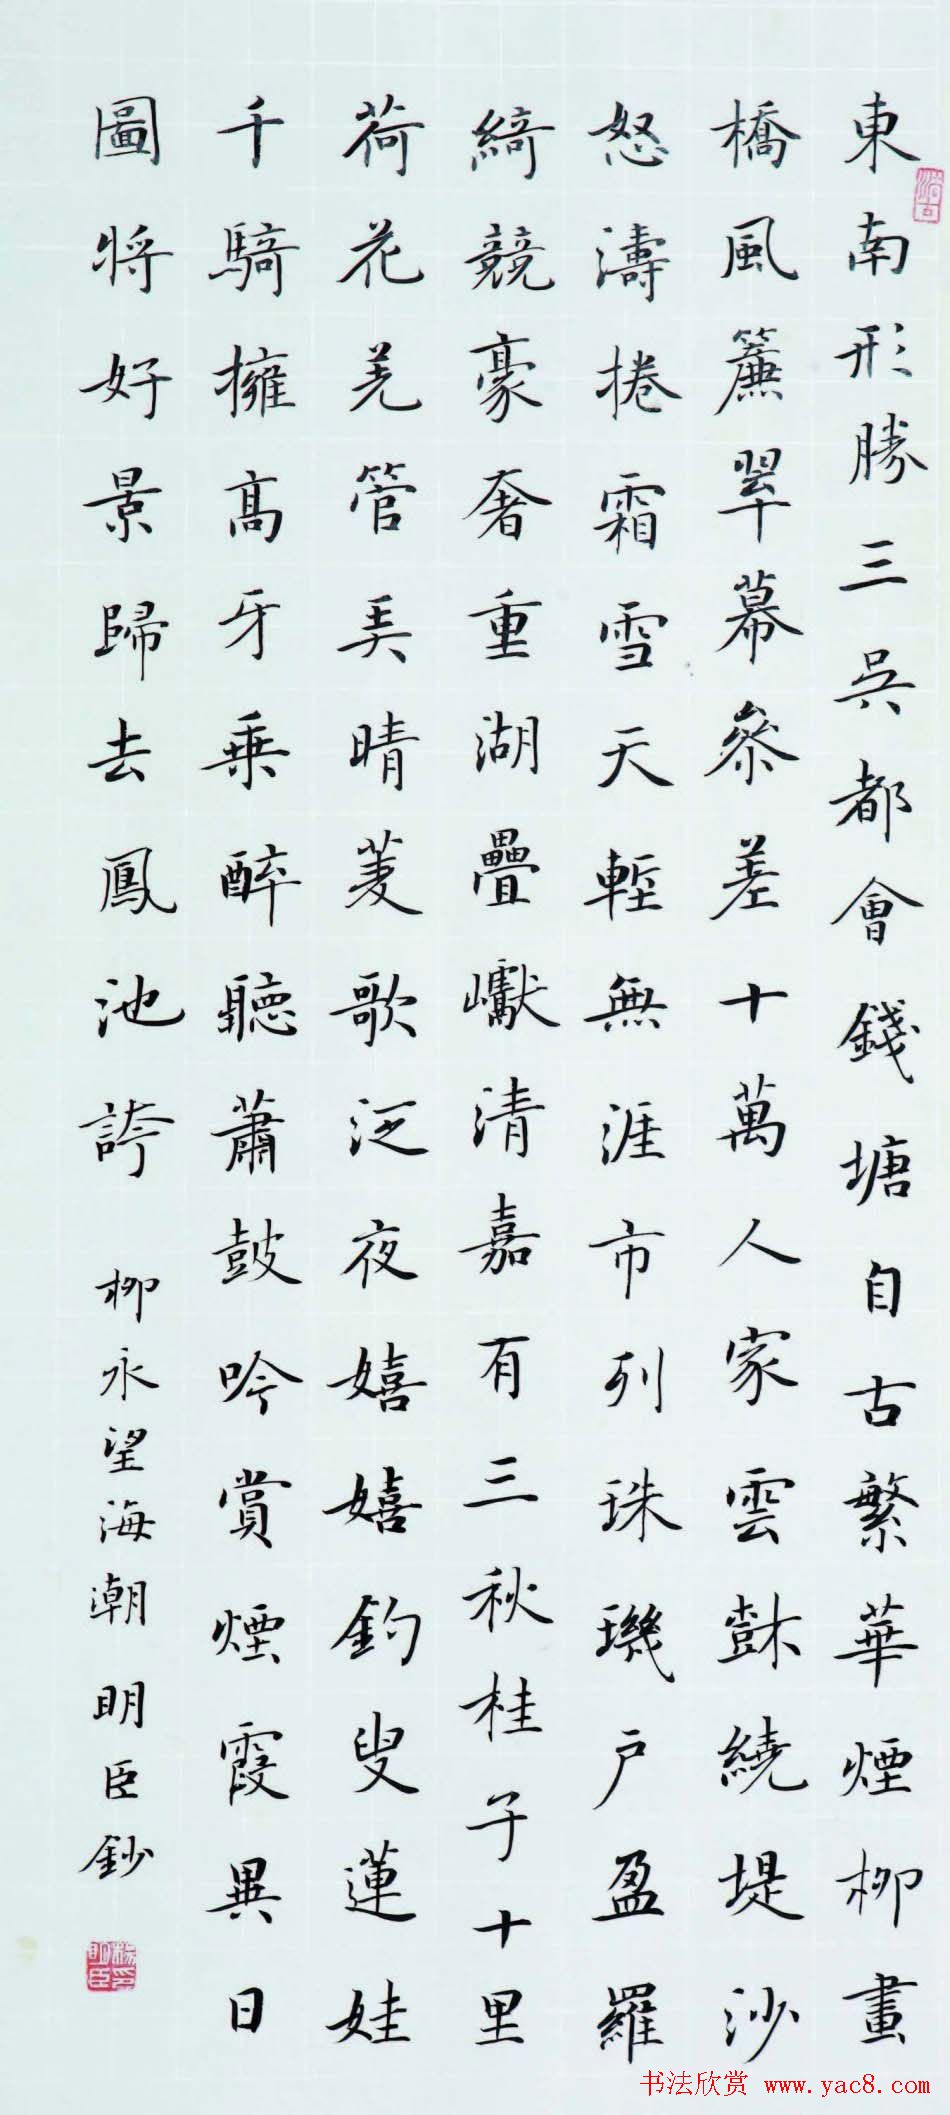 東南形勝三吳都會錢塘自古繁華煙柳畫
橋風簾翠幕參差十萬人家雲樹繞堤沙
怒濤捲霜雪天塹無涯市列珠璣戶盈羅
綺競豪奢重湖疊巘清嘉有三秋桂子十里
荷花羌管弄晴菱歌泛夜嬉嬉釣叟蓮娃
千騎擁高牙乘醉聽蕭鼓吟賞煙霞異日
圖將好景歸去鳳池誇 柳永望海潮 明臣鈔
书法欣赏 www.yac8.com